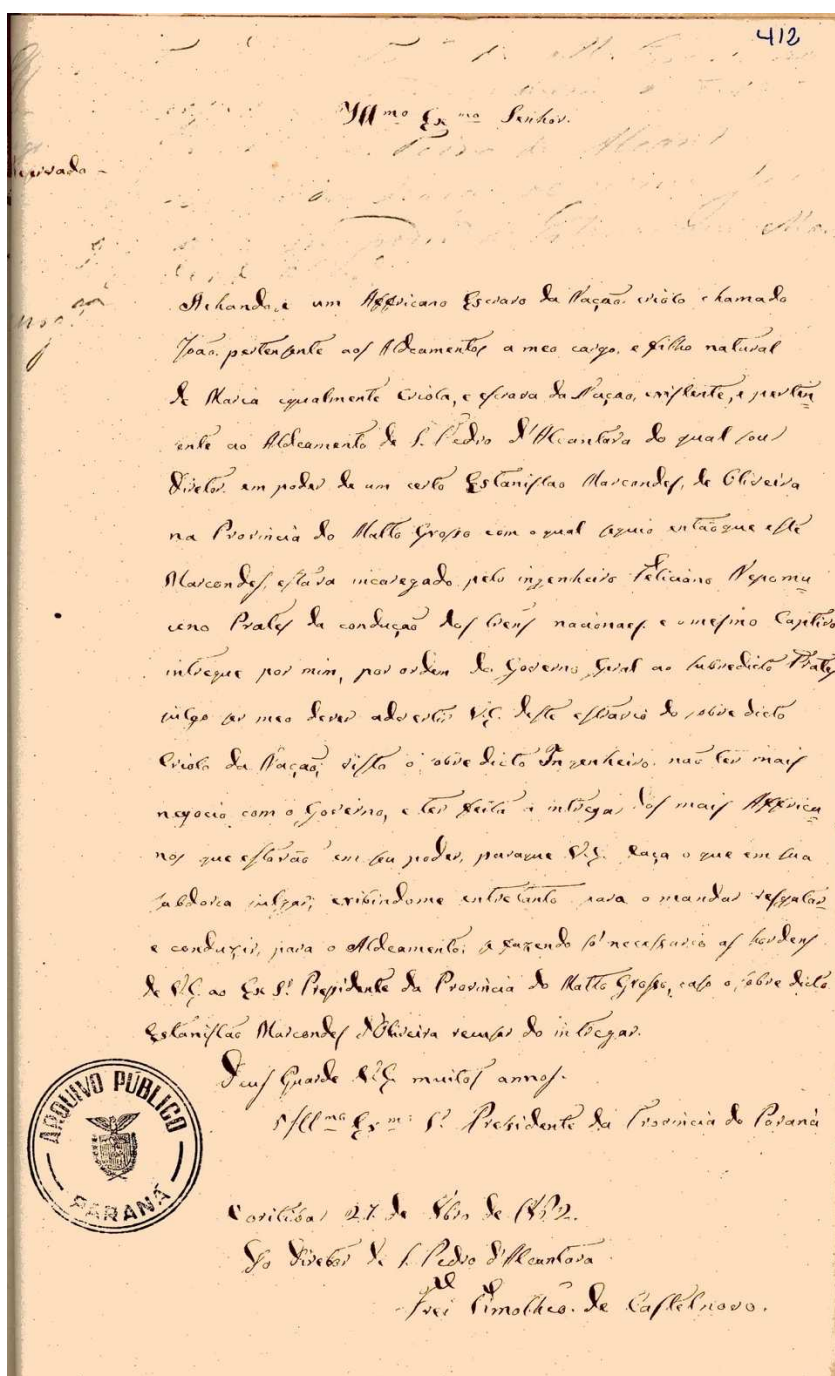 412
Ill mo Ex mo Senhor.
Achando, e um Affricano Escravo da Nação, criolo chamado
João, pertensente aos Aldeamentos a meo cargo, e filho natural
de Maria egualmente Criola, e escrava da Nação, existente, e perten-
cente ao Aldeamento de S. Pedro d'Alcantara do qual sou
Diretor. em poder de um certo Estanislao Marcondes, de Oliveira
na Provincia do Matto Grosso com o qual seguio então que este
Marcondes, estava incaregado pelo ingenheiro Feliciano Nepomu
ceno Prates da condução dos trens nacionaes, e o mesmo Captivo
intregue por mim, por ordem do Governo Geral ao subredicto Prates
julgo ser meo dever advertir V.E. deste estravio do sobre dicto
Criolo da Nação; visto o sobre dicto Ingenheiro, não ter mais
negocio com o Governo, e ter feito a intrega, dos mais Affrica-
nos que estavão em seu poder, paraque V.E. faça o que em sua
sabdoria julgar, exibindome entretanto para o mandar resgatar
e conduzir, para o Aldeamento; se fazendo só necessario as hordens
de V.E. ao Ex Sr. Prezidente da Provincia do Matto Grosso, caso o sobre dicto
Estanislao Marcondes d'Oliveira recusar do intregar.
Deus Guarde V.E. muitos annos.
Ill mo Ex mo Sr. Presidente da Provincia do Paraná
ARQUIVO PÚBLICO
PARANÁ
Coritiba 27 de 8bro de 1862.
Do Diretor de S. Pedro d'Alcantara
Frei Timotheo de Castelnovo.